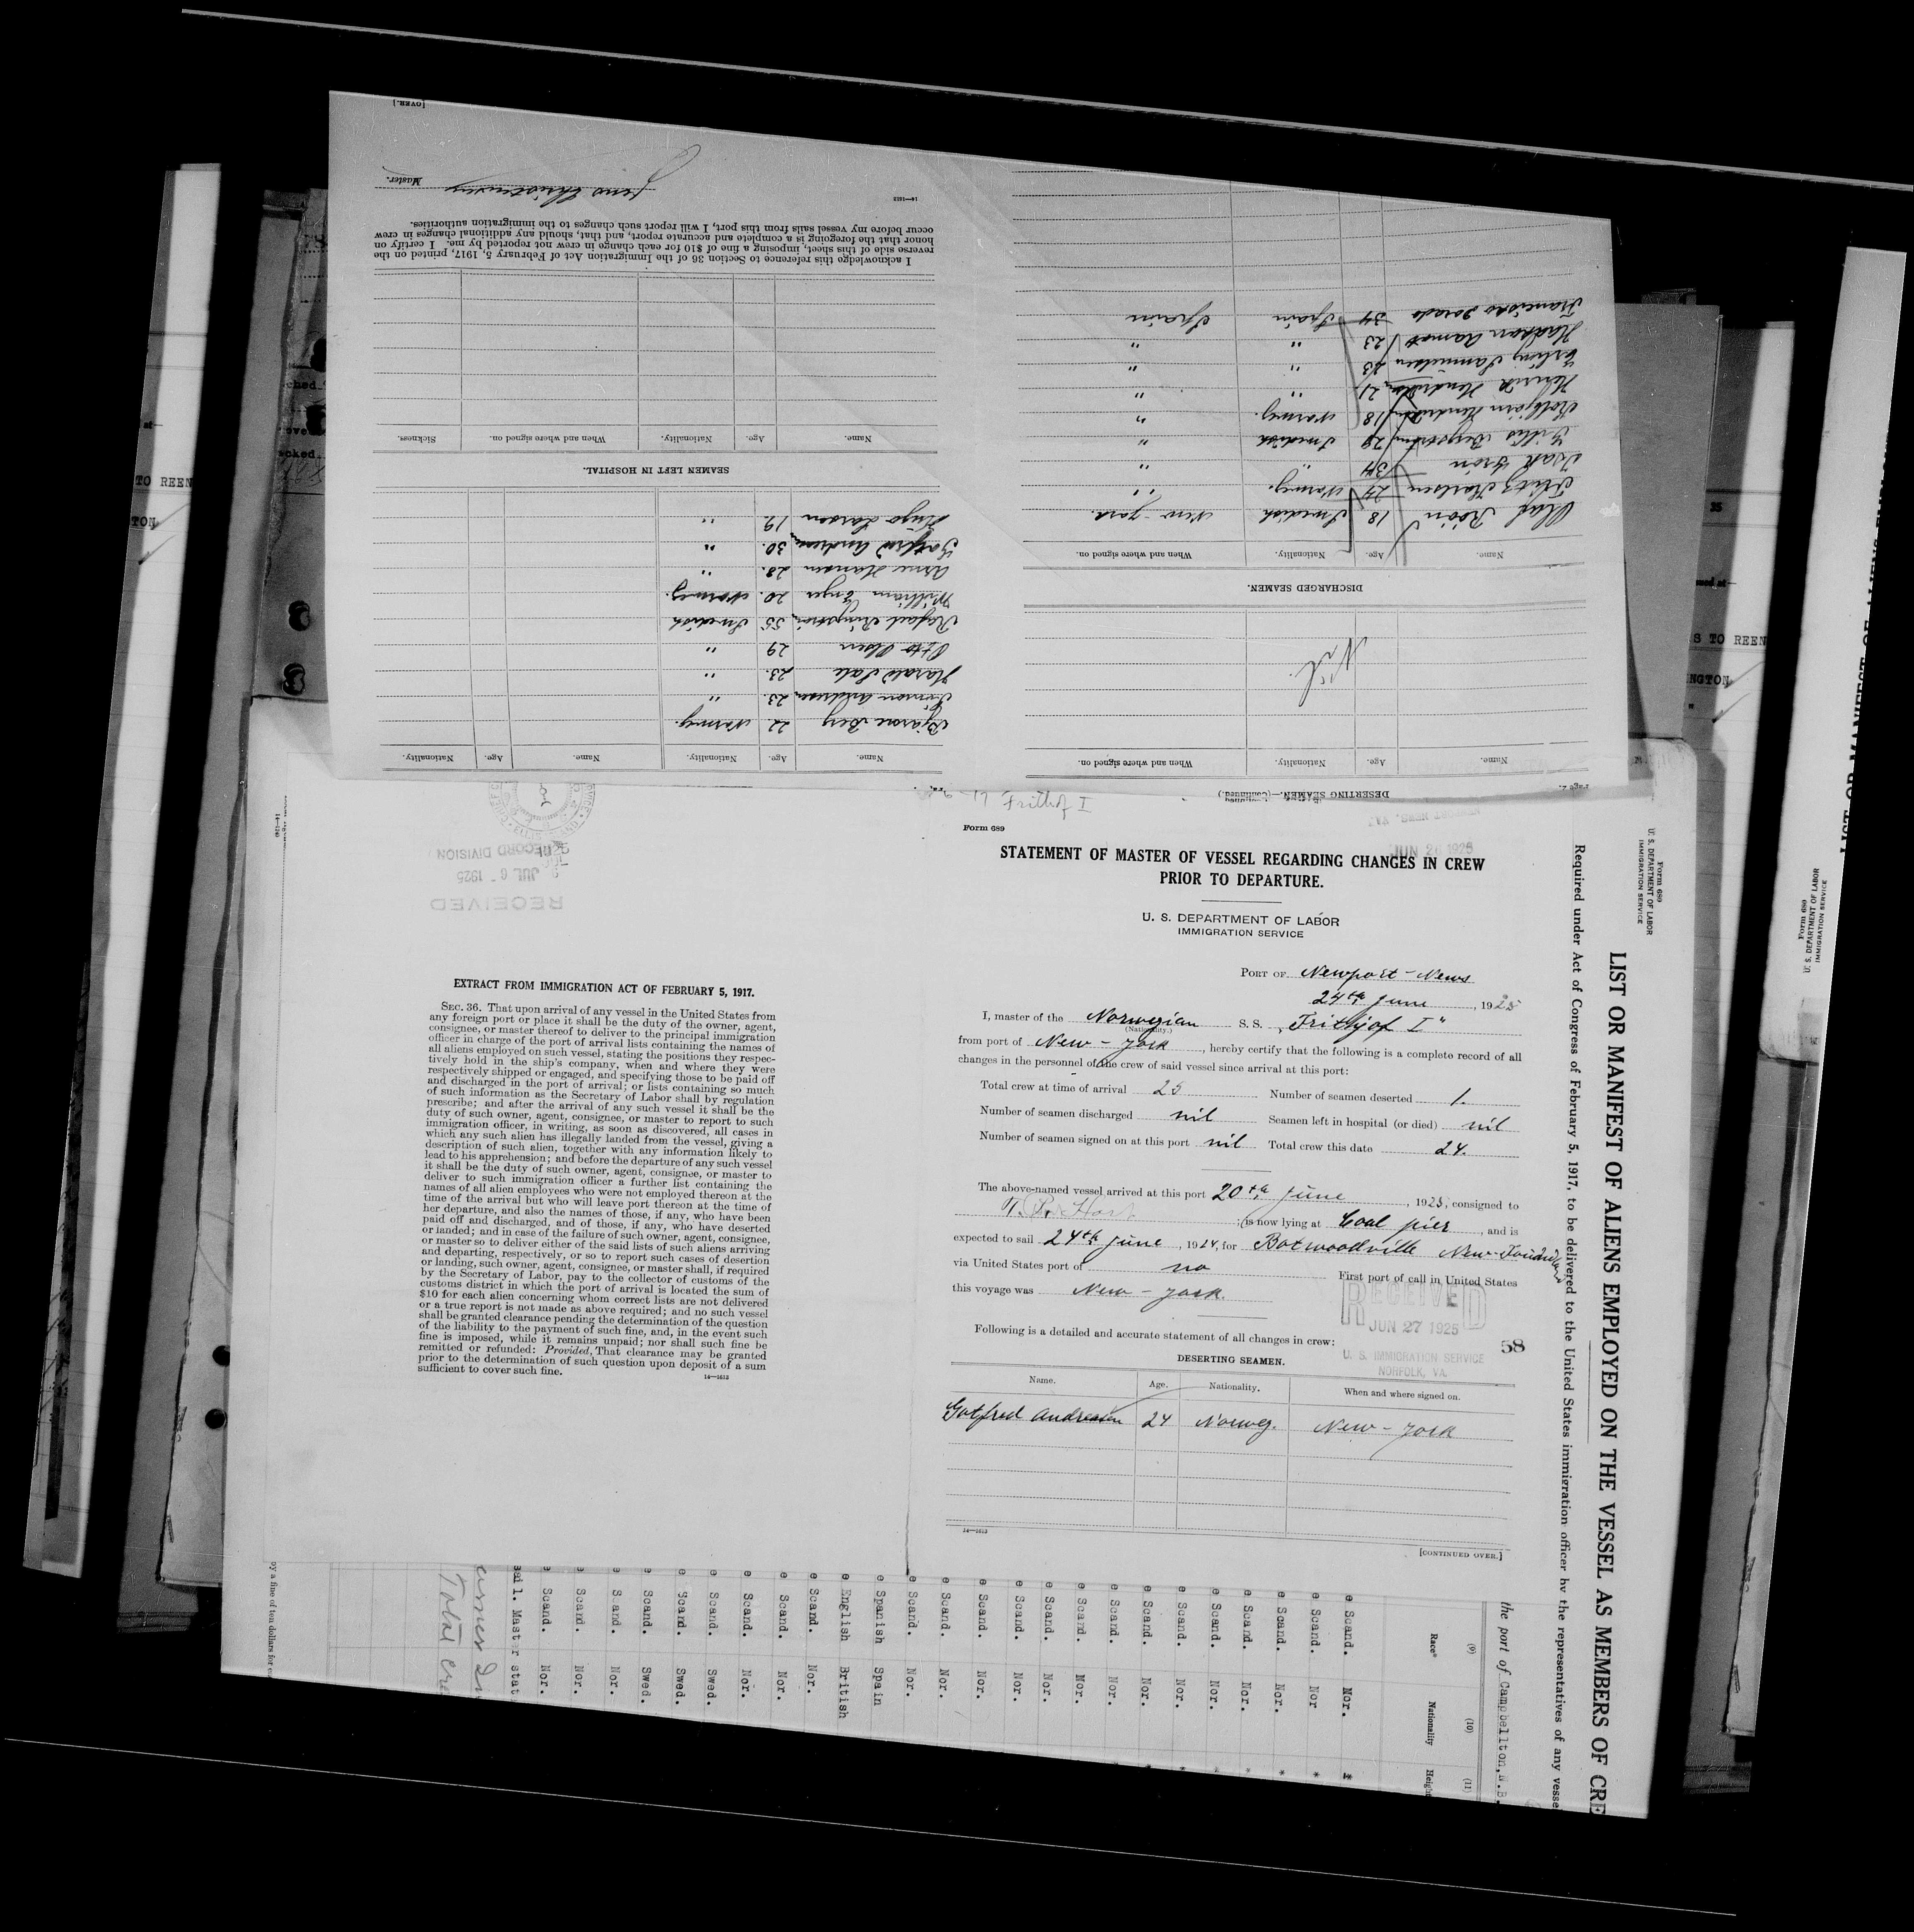 Frithjof I
Form 689
STATEMENT OF MASTER OF VESSEL REGARDING CHANGES IN CREW
PRIOR TO DEPARTURE.
U. S. DEPARTMENT OF LABOR
IMMIGRATION SERVICE
JUN 26 1925
PORT OF Newport-News
24th June, 1925
I, master of the Norwegian S. S. „Frithjof I"
(Nationality.)
from port of New-York, hereby certify that the following is a complete record of all
changes in the personnel of the crew of said vessel since arrival at this port:
Total crew at time of arrival 25 Number of seamen deserted 1.
Number of seamen discharged nil Seamen left in hospital (or died) nil
Number of seamen signed on at this port nil Total crew this date 24.
The above-named vessel arrived at this port 20th June, 1925, consigned to
is now lying at Coal pier, and is
expected to sail 24th June, 1924, for Botwoodville New-Foundland
via United States port of no First port of call in United States
this voyage was New-York.
RECEIVED
JUN 27 1925
U. S. IMMIGRATION SERVICE
NORFOLK, VA.
58
Following is a detailed and accurate statement of all changes in crew:
DESERTING SEAMEN.
Name. Age. Nationality. When and where signed on.
Gotfred Andresen 24 Norweg. New-York
14—1613
[CONTINUED OVER.]
RECEIVED
JUL 6 - 1925
RECORD DIVISION
EXTRACT FROM IMMIGRATION ACT OF FEBRUARY 5, 1917.
SEC. 36. That upon arrival of any vessel in the United States from
any foreign port or place it shall be the duty of the owner, agent,
consignee, or master thereof to deliver to the principal immigration
officer in charge of the port of arrival lists containing the names of
all aliens employed on such vessel, stating the positions they respec-
tively hold in the ship's company, when and where they were
respectively shipped or engaged, and specifying those to be paid off
and discharged in the port of arrival; or lists containing so much
of such information as the Secretary of Labor shall by regulation
prescribe; and after the arrival of any such vessel it shall be the
duty of such owner, agent, consignee, or master to report to such
immigration officer, in writing, as soon as discovered, all cases in
which any such alien has illegally landed from the vessel, giving a
description of such alien, together with any information likely to
lead to his apprehension; and before the departure of any such vessel
it shall be the duty of such owner, agent, consignee, or master to
deliver to such immigration officer a further list containing the
names of all alien employees who were not employed thereon at the
time of the arrival but who will leave port thereon at the time of
her departure, and also the names of those, if any, who have been
paid off and discharged, and of those, if any, who have deserted
or landed; and in case of the failure of such owner, agent, consignee,
or master so to deliver either of the said lists of such aliens arriving
and departing, respectively, or so to report such cases of desertion
or landing, such owner, agent, consignee, or master shall, if required
by the Secretary of Labor, pay to the collector of customs of the
customs district in which the port of arrival is located the sum of
$10 for each alien concerning whom correct lists are not delivered
or a true report is not made as above required; and no such vessel
shall be granted clearance pending the determination of the question
of the liability to the payment of such fine, and, in the event such
fine is imposed, while it remains unpaid; nor shall such fine be
remitted or refunded: Provided, That clearance may be granted
prior to the determination of such question upon deposit of a sum
sufficient to cover such fine.
14—1613
Page 2.
DESERTING SEAMEN.—(Continued.)
Name. Age. Nationality. When and where signed on.
Nil
DISCHARGED SEAMEN.
Name. Age. Nationality. When and where signed on.
Olaf Röön 18 Swedish New-York.
Karlsen 24 Norweg. "
Isak Grön 34 " "
Bergström Swedish "
Hendriksen 18 Norweg. "
Henrik Hendriksen 21 " "
Erling Samuelsen 23 " "
Haakon Aamot 23 " "
Francisko Dorado 34 Spain Spain
14—1613
Name. Age. Nationality. Name. Age. Nationality.
Bjarne Berg 22 Norweg.
Andresen 23. "
Harald Dale 23. "
Otto Olsen 29 "
55 Swedish
William Enger 20. Norweg.
Arne Hansen 28. "
Gotfred Andresen 30. "
Hugo Larsen 19. "
SEAMEN LEFT IN HOSPITAL.
Name. Age. Nationality. When and where signed on. Sickness.
I acknowledge this reference to Section 36 of the Immigration Act of February 5, 1917, printed on the
reverse side of this sheet, imposing a fine of $10 for each change in crew not reported by me. I certify on
honor that the foregoing is a complete and accurate report, and that, should any additional changes in crew
occur before my vessel sails from this port, I will report such changes to the immigration authorities.
Jens Christensen
Master.
[OVER.]
Form 689
U. S. DEPARTMENT OF LABOR
IMMIGRATION SERVICE
LIST OR MANIFEST OF ALIENS EMPLOYED ON THE VESSEL AS MEMBERS OF CRE
Required under Act of Congress of February 5, 1917, to be delivered to the United States immigration officer by the representatives of any vesse
the port of Campbellton, N.B.
(9) (10) (11)
Race* Nationality Height
Scand. Nor.
Scand. Nor
Scand. Nor.
Scand. Nor.
Scand. Nor.
Scand. Nor.
Scand. Nor.
Scand. Nor.
Scand. Nor.
Scand. Nor.
Scand. Nor.
Scand. Nor.
Scand. Nor.
Scand. Nor.
Spanish Spain
English British
Scand. Nor.
Scand. Nor.
Scand. Nor.
Scand. Swed.
Scand. Swed.
Scand. Swed.
Scand. Nor.
Scand. Nor.
Scand. Nor.
ail. Master stat
Total cre
by a fine of ten dollars for
Form 689
U. S. DEPARTMENT OF LABOR
IMMIGRATION SERVICE
TO REEN
TON
S TO REEN
NGTON